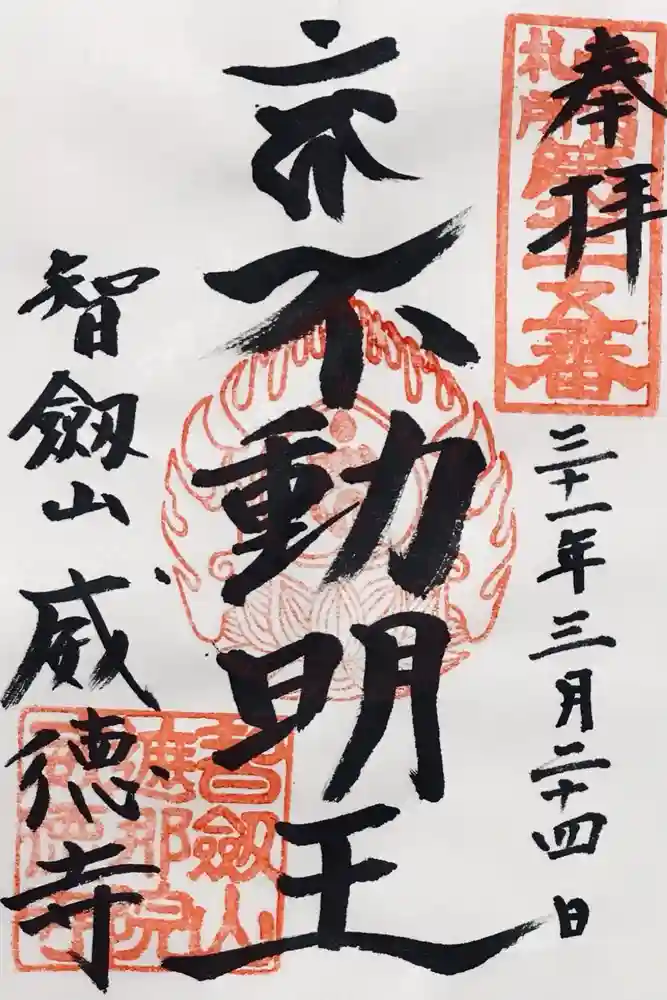 奉拝
札所
第七十五番
三十一年三月二十四日
赤不動明王
智劔山 威徳寺
智劔山
遮那院
威徳寺